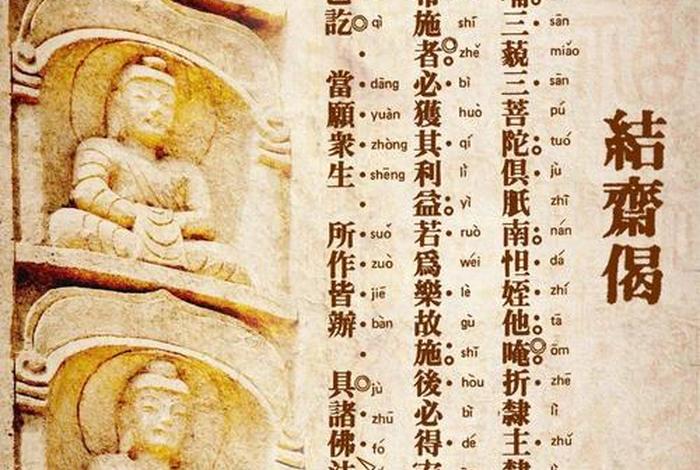 結齋偈
三藐三菩陀俱胝南怛姪他唵折隸主
sān miǎo sān pú tuó jù zhī nán dá zhí tā ōm zhē lì zhǔ
施者必獲其利益若爲樂故施後必得
shī zhě bì huò qí lì yì ruò wéi lè gù shī hòu bì dé
訖 當願衆生 所作皆辦 具諸佛
qì dāng yuàn zhòng shēng suǒ zuò jiē bàn jù zhū fó